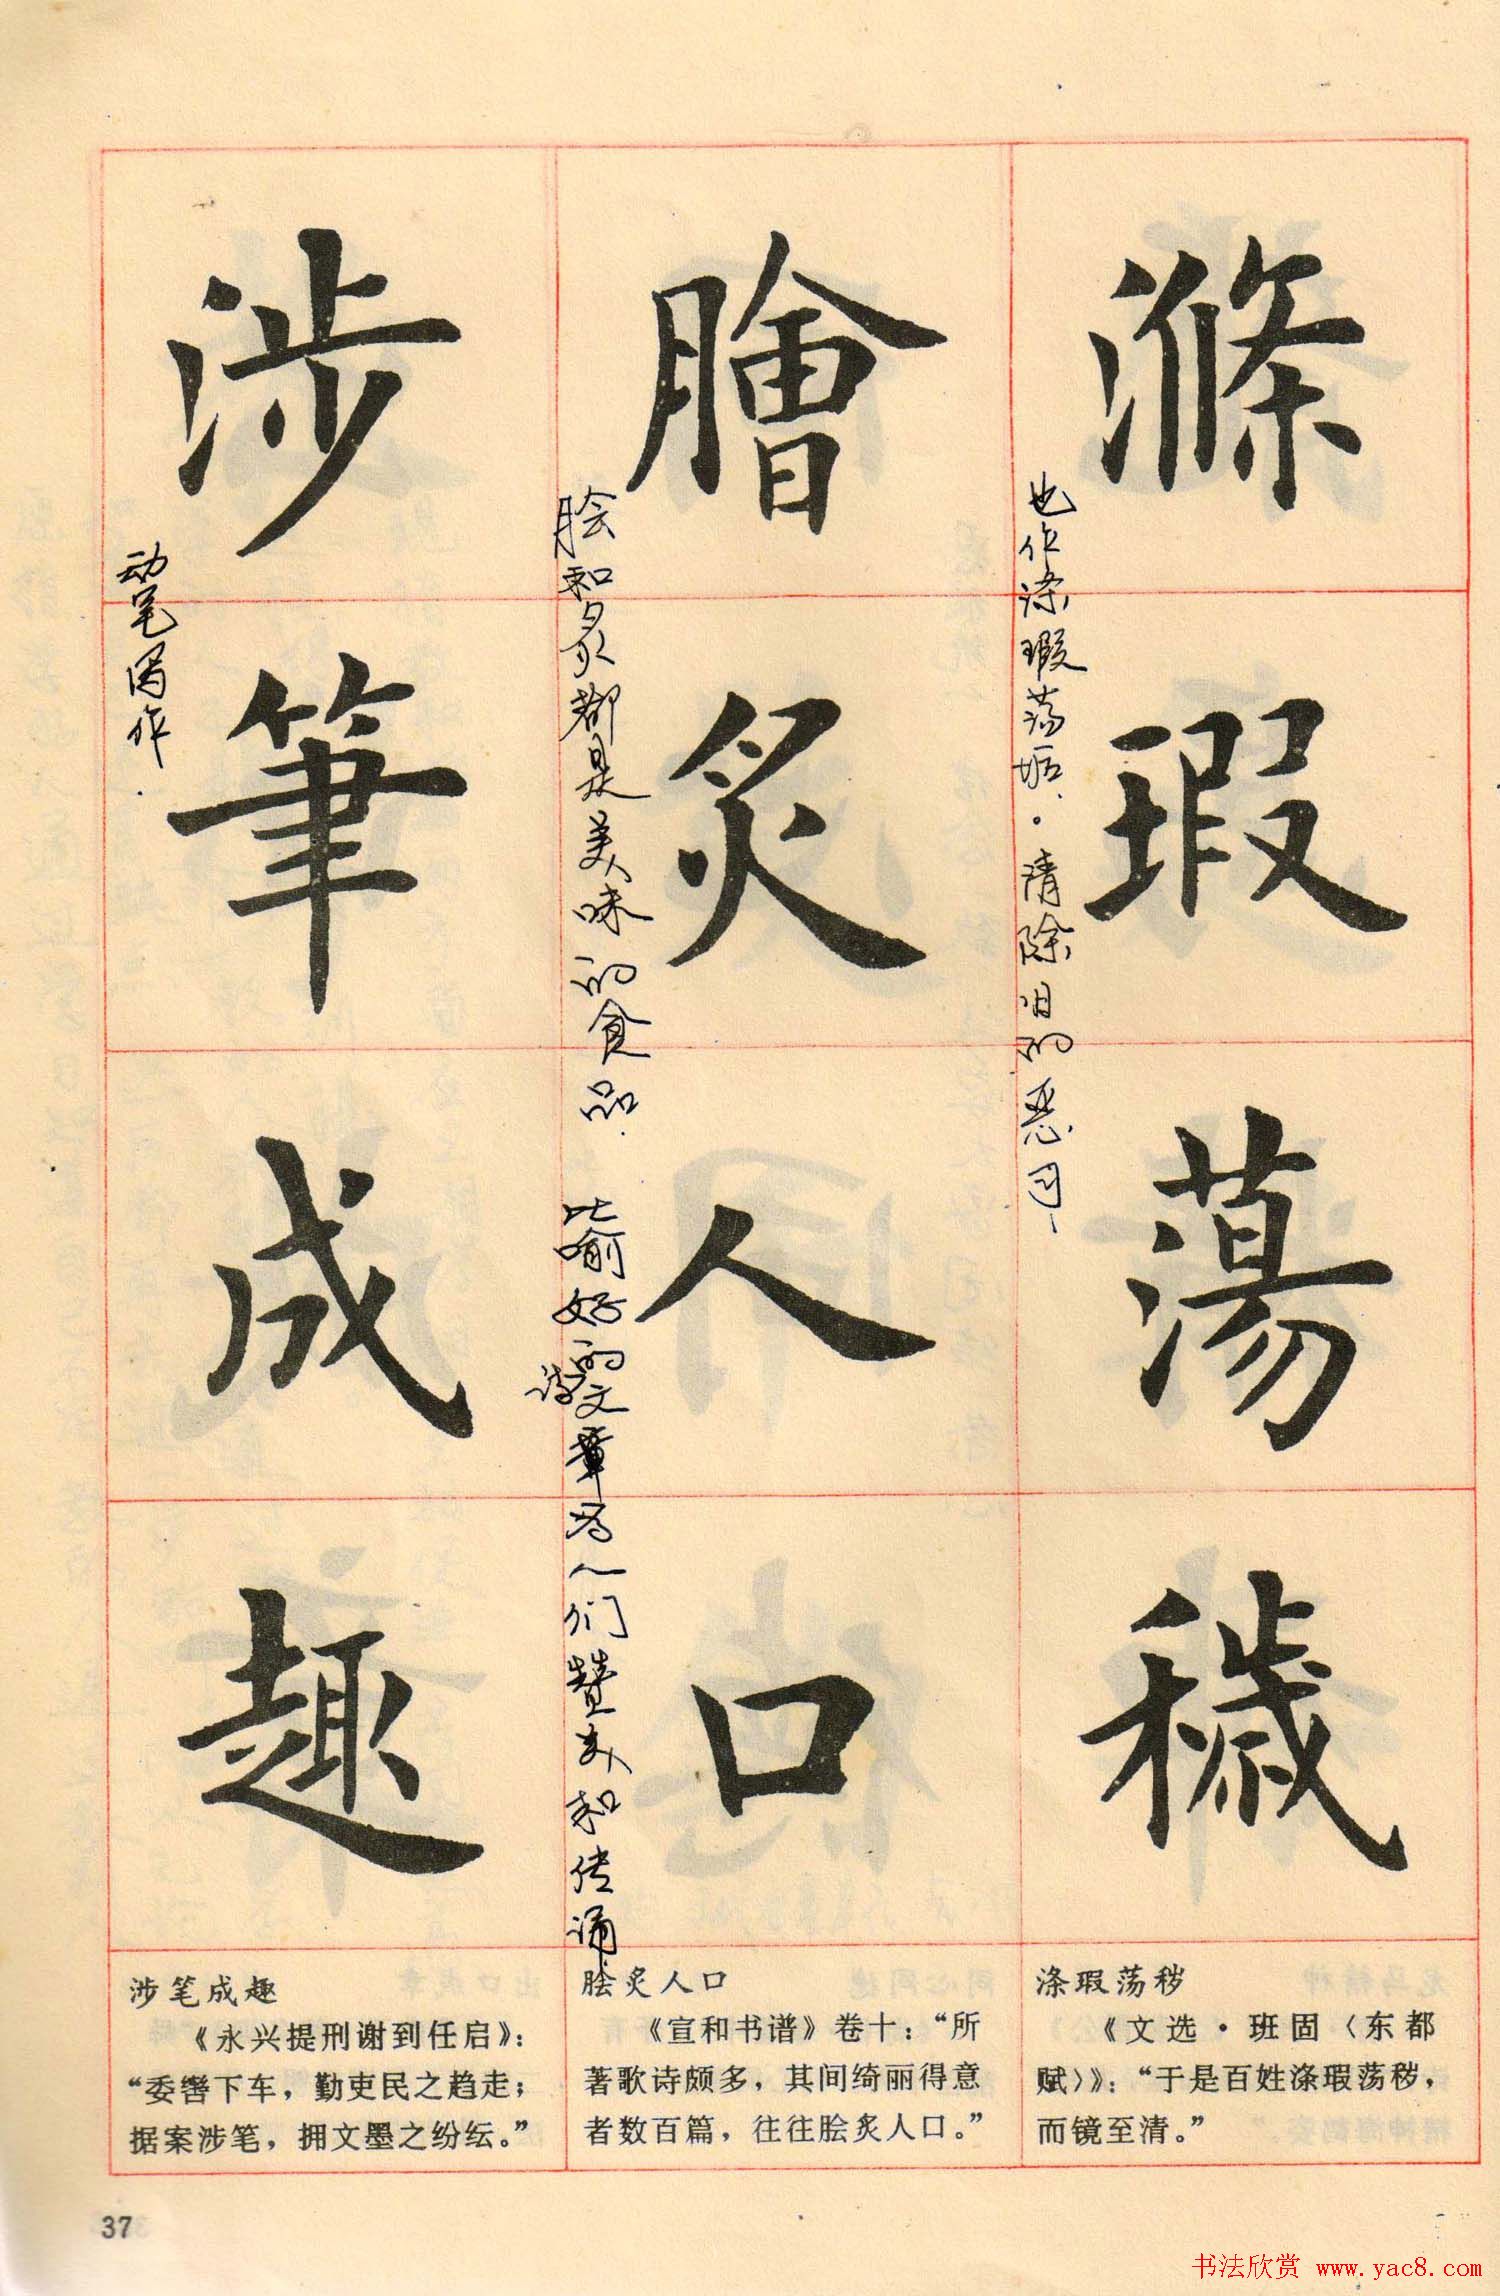 滌瑕蕩穢
也作涤瑕荡垢．清除旧的恶习
膾炙人口
脍和炙都是美味的食品．
比喻好的诗文章为人们赞美和传诵
涉筆成趣
动笔写作．
涤瑕荡秽
《文选·班固〈东都
赋〉》：“于是百姓涤瑕荡秽，
而镜至清。”
脍炙人口
《宣和书谱》卷十：“所
著歌诗颇多，其间绮丽得意
者数百篇，往往脍炙人口。”
涉笔成趣
《永兴提刑谢到任启》：
“委辔下车，勤吏民之趋走；
据案涉笔，拥文墨之纷纭。”
37
书法欣赏 www.yac8.com